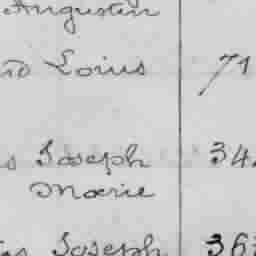 Augustin
Loius 71
Joseph 34
Marie
Joseph 36